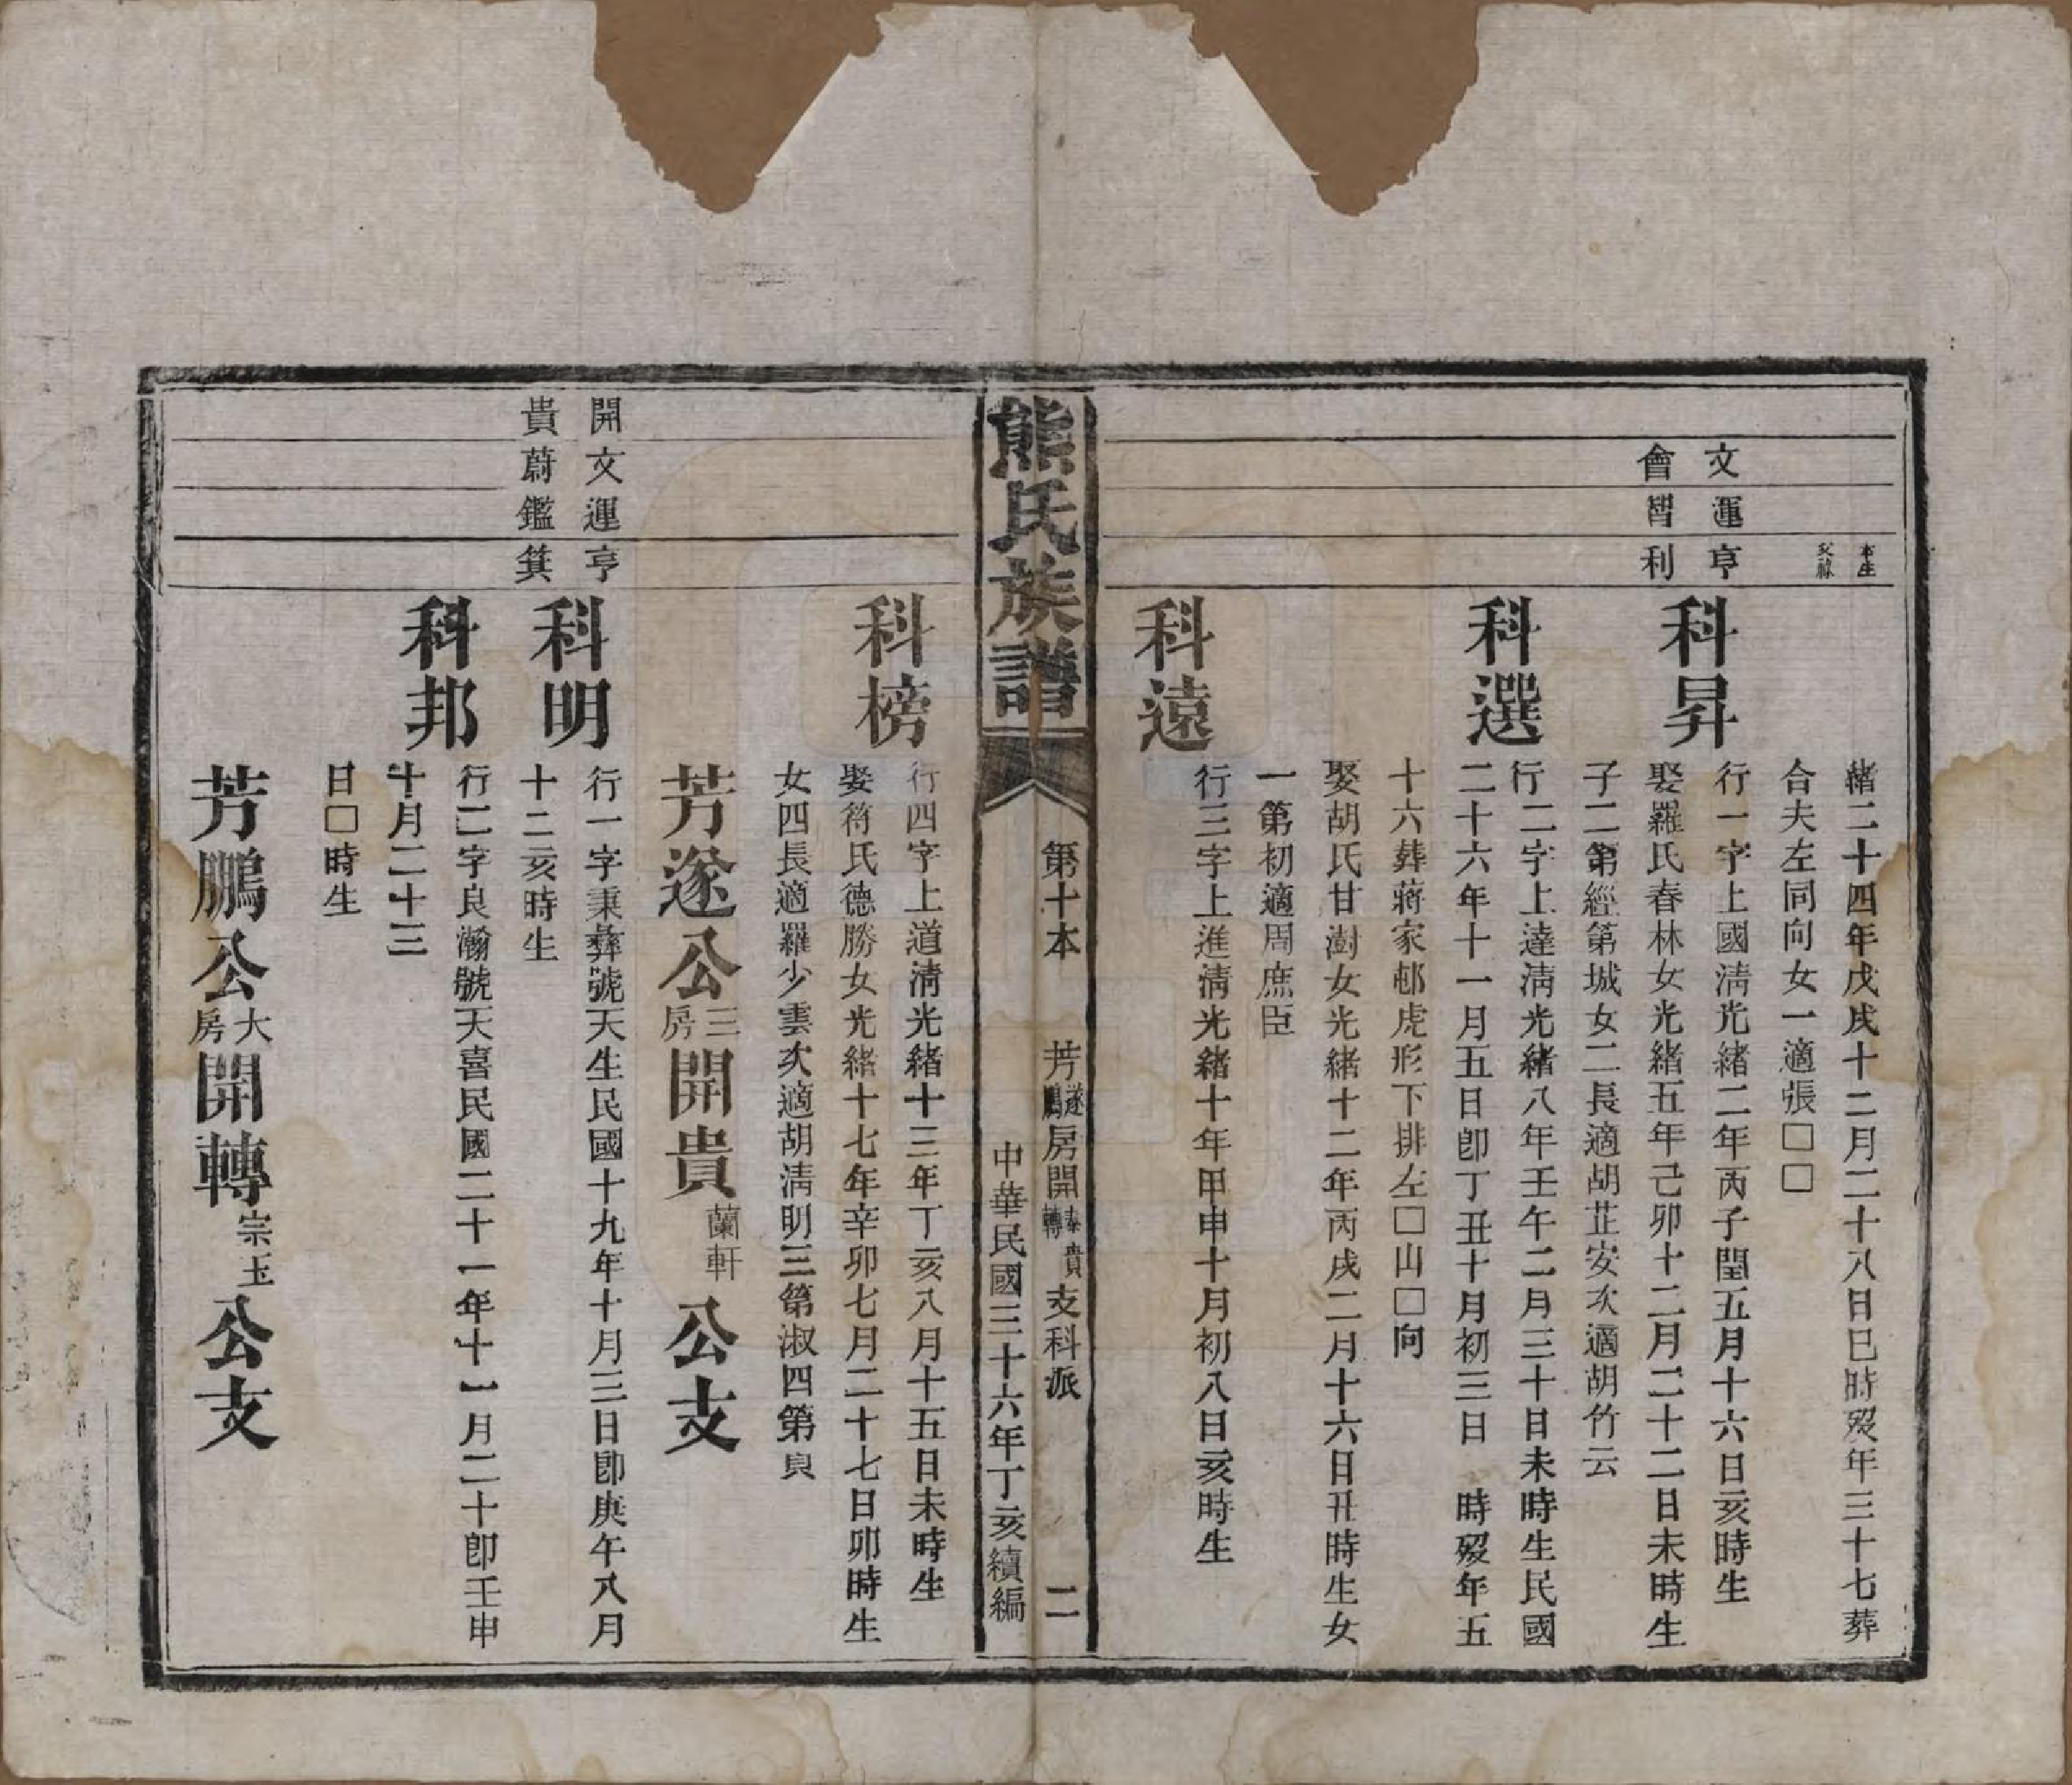 緒二十四年戊戌十二月二十八日巳時歿年三十七葬
合夫左同向女一適張□□
本生
文運亨
會智利
科昇
行一字上國淸光緒二年丙子閏五月十六日亥時生
娶羅氏春林女光緒五年己卯十二月二十二日未時生
子二第經第城女二長適胡芷安次適胡竹云
科選
行二字上達淸光緒八年壬午二月三十日未時生民國
二十六年十一月五日卽丁丑十月初三日 時歿年五
十六葬蔣家邨虎形下排左□山□向
娶胡氏甘澍女光緒十二年丙戌二月十六日丑時生女
一第初適周庶臣
科遠
行三字上進淸光緒十年甲申十月初八日亥時生
熊氏族譜
第十本 芳遂鵬房開泰貴轉支科派 二
中華民國三十六年丁亥續編
科榜
行四字上道淸光緒十三年丁亥八月十五日未時生
娶符氏德勝女光緒十七年辛卯七月二十七日卯時生
女四長適羅少雲次適胡淸明三第淑四第貞
芳遂公三房開貴蘭軒公支
開文運亨
貴蔚鑑箕
科明
行一字秉彝號天生民國十九年十月三日卽庚午八月
十二亥時生
科邦
行二字良瀚號天喜民國二十一年十一月二十卽壬申
十月二十三
日□時生
芳鵬公大房開轉宗玉公支